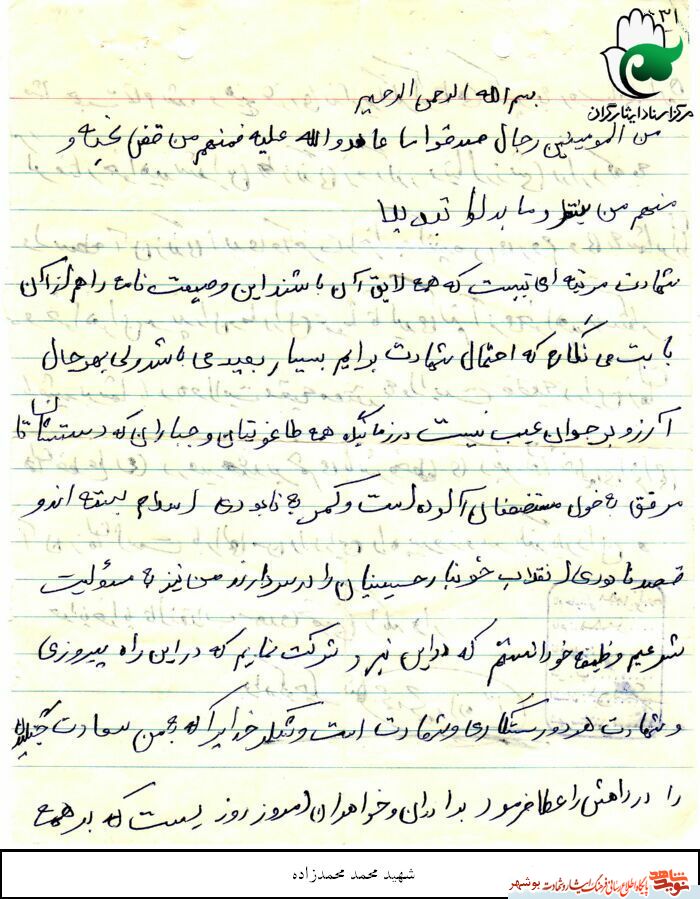 ۳۱
مرکز اسناد ایثارگران
بسم الله الرحمن الرحیم
من المومنین رجال صدقوا ما عاهدوالله علیه فمنهم من قضی نحبه و
منهم من ینتظر و ما بدلوا تبدیلا
شهادت مرتبه ای نیست که همه لایق آن باشند این وصیت نامه را هم از آن
بابت می نگارم که احتمال شهادت برایم بسیار بعید می باشد ولی بهر حال
آرزو بر جوان عیب نیست در زمانیکه همه طاغوتیان و جباران که دستشان تا
مرفق به خون مستضعفان آلوده است و کمر به نابودی اسلام بسته اند و
قصد نابودی انقلاب خونبار حسینیان را در سر دارند من نیز به مسئولیت
شرعیم وظیفه خود دانستم که در این نبرد شرکت نمایم که در این راه پیروزی
و شهادت هر دو رستگاری و شهادت است و شکر خدایرا که به من سعادت
را در راهش را عطا فرمود برادران و خواهران امروز روزیست که بر همه
شهید محمد محمدزاده
نوید شاهد
پایگاه اطلاع رسانی فرهنگ ایثار و شهادت بوشهر